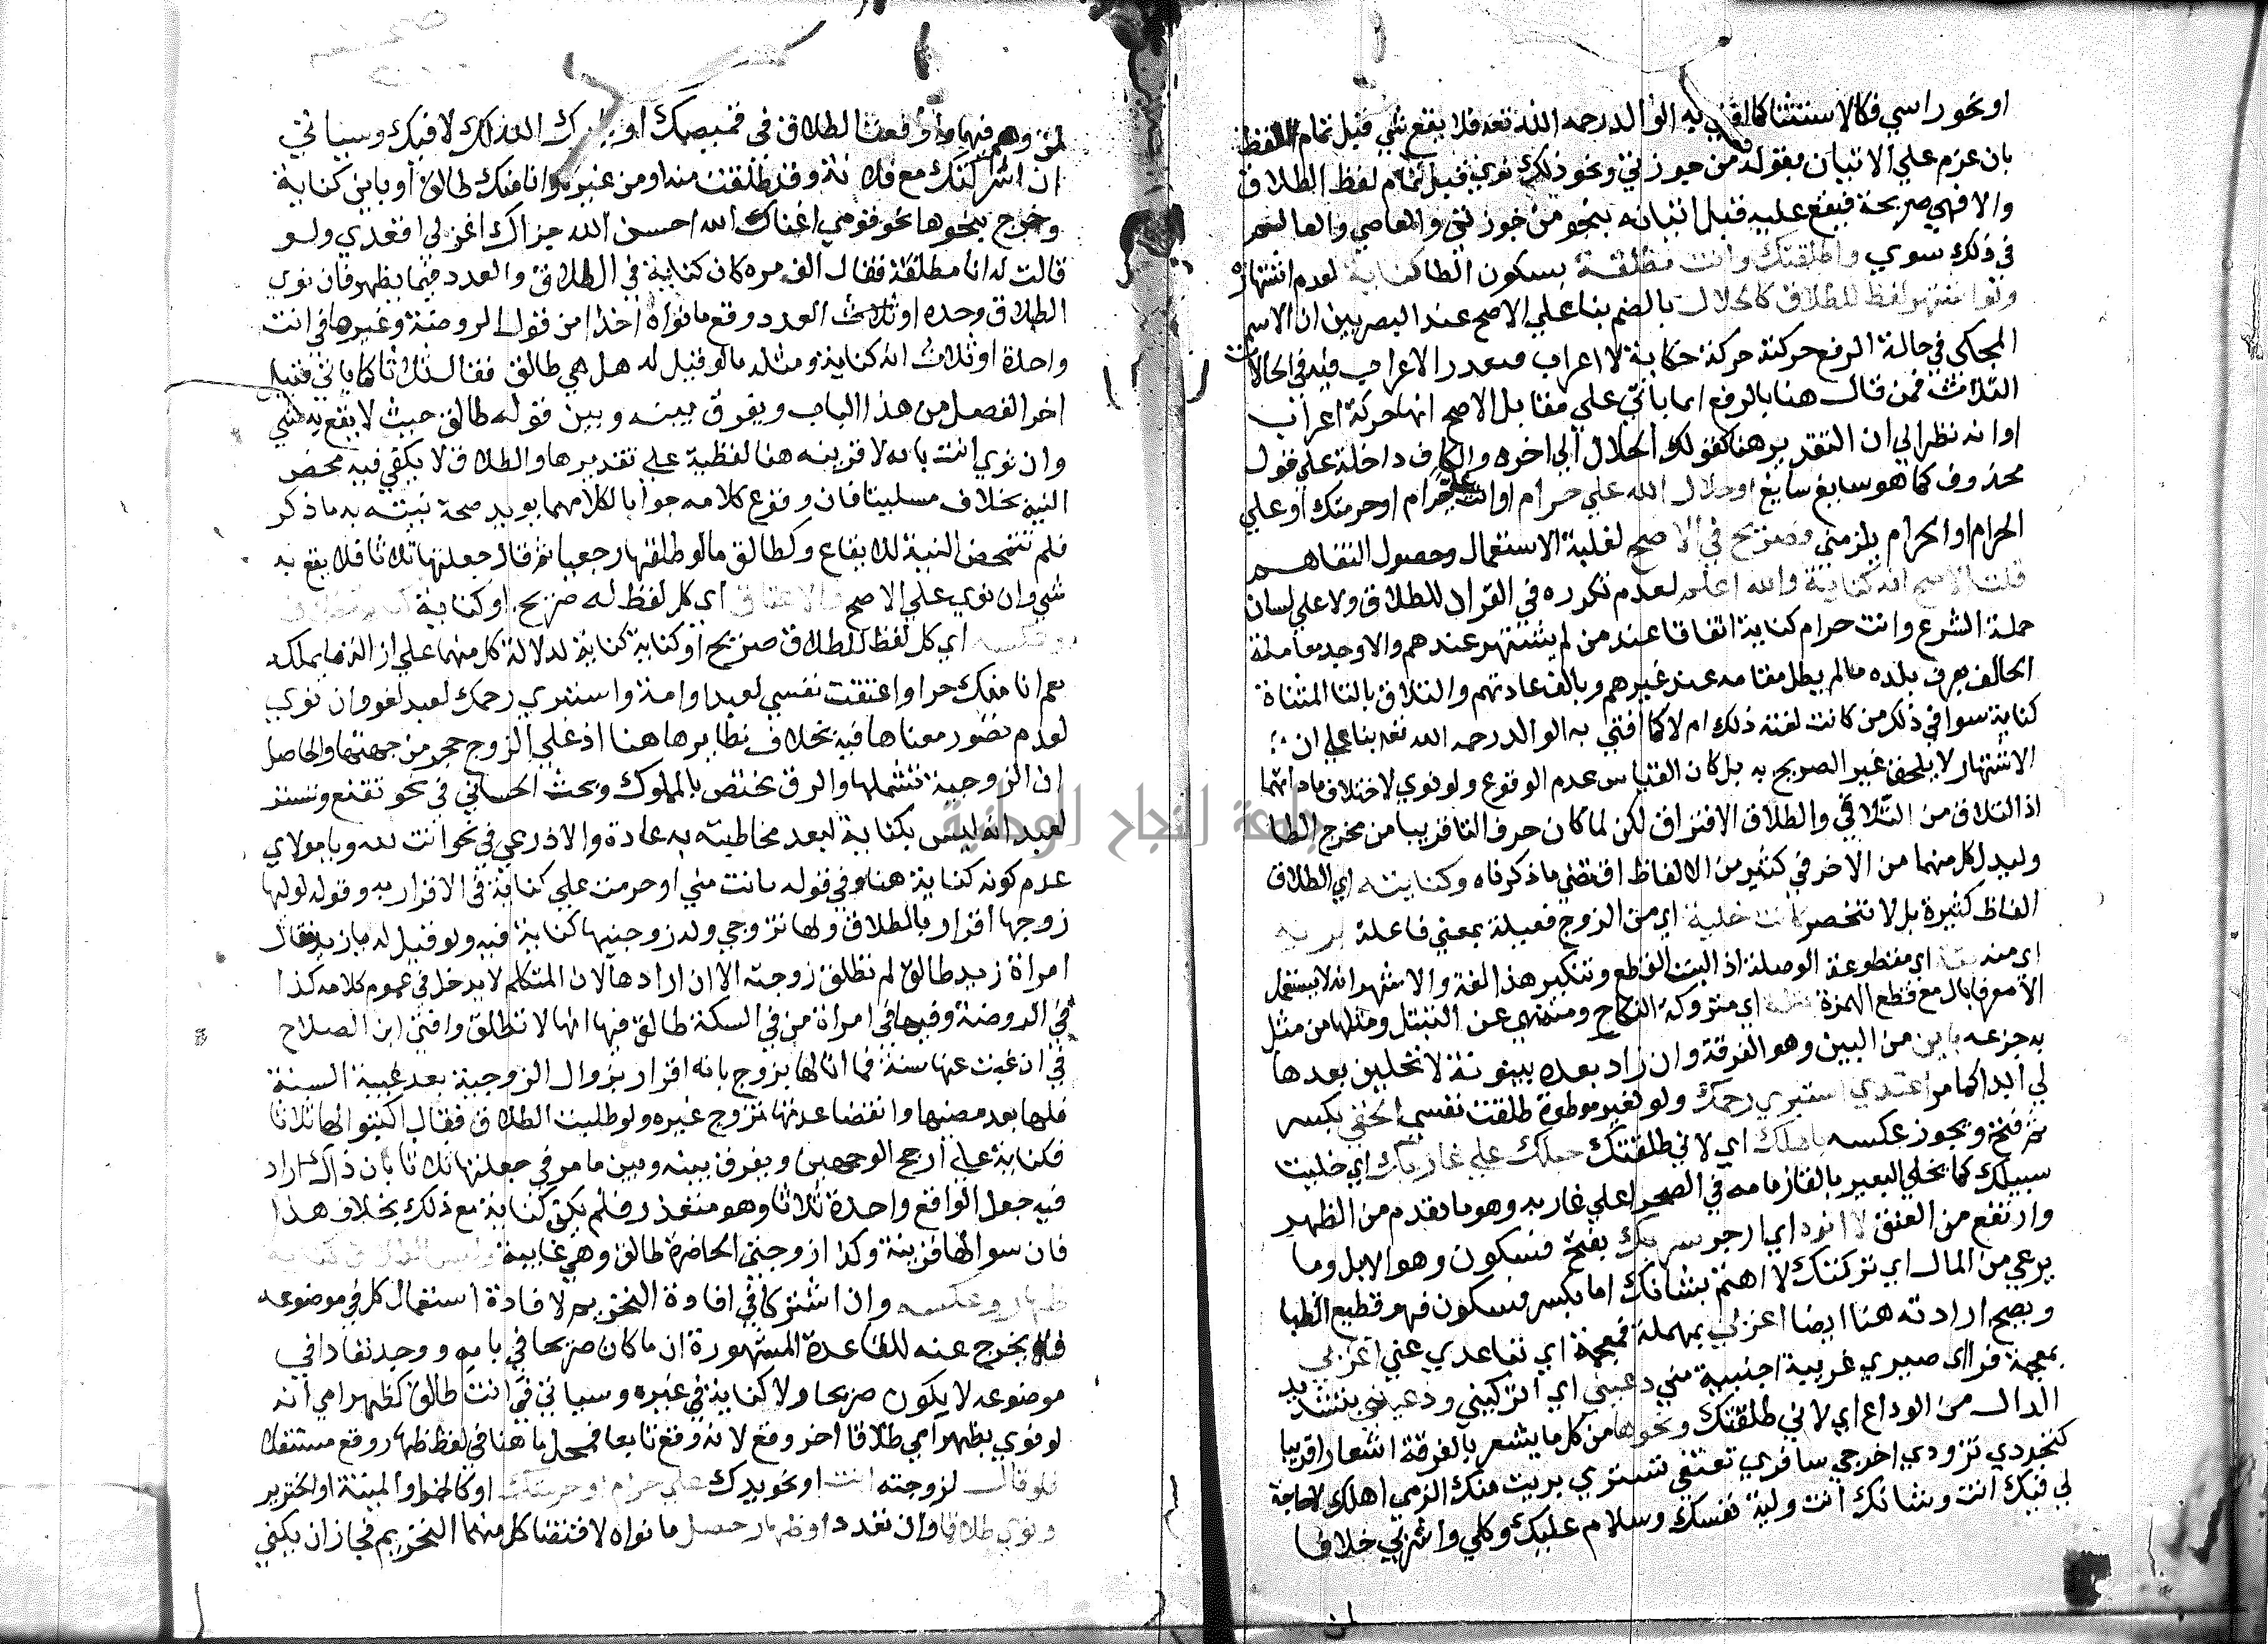 او نحو راسي فكالاستثنا كما افتي به الوالد رحمه الله تعه فلا يقع شي قبل تمام اللفظ
بان عزم علي الاتيان بقوله من حيوزتي ونحو ذلك نوي قبل تمام لفظ الطلاق
والا فهي صريحة فيقع عليه قبل اتيانه بنحو من خوزتي والعاصي والعا
في ذلك سوي واطلقتك وانت مطلقة بسكون الطا كناية لعدم اشتهاره
ولو اشتهر لفظ للطلاق كالحلال بالضم بنا علي الاصح عند البصريين ان الاسم
المحكى في حالة الرفع حركته حركة حكاية لا اعراب فيعذر الاعراب فيه في الحالات
الثلاث فمن قال هنا بالرفع انما ياتي علي مقابل الاصح انها حركة اعراب
او انه نظر الي ان التقدير هنا كقولك الحلال الي اخره والكاف داخلة علي قول
محذوف كما هو سايغ سايغ او حلال الله علي حرام او انت علي حرام او حرمتك او علي
الحرام او الحرام يلزمني فصريح في الاصح لغلبة الاستعمال وحصول التفاهم
قلت الاصح انه كناية والله اعلم لعدم تكرره في القران للطلاق ولا علي لسان
حملة الشرع وانت حرام كناية اتفاقا عند من لم يشتهر عندهم والاوجه معاملة
الحالف بعرف بلده مالم يطل مقامه عند غيرهم ويالف عادتهم والتلاق بالتا المثناة
كناية سوا في ذلك من كانت لغته ذلك ام لا كما افتي به الوالد رحمه الله تعه بنا علي ان
الاشتهار لا يلحق غير الصريح به بل كان القياس عدم الوقوع ولو نوي لاختلاف مادتهما
اذ التلاق من التلاقي والطلاق الافتراق لكن لما كان حرف التا قريبا من مخرج الطا
وليبدل كل منهما من الاخر في كثير من الالفاظ اقتضي ما ذكرناه وكنايته اي الطلاق
الفاظ كثيرة بل لا تنحصر كانت خلية اي من الزوج فعيلة بمعني فاعلة برية
اي منه بتة اي مقطوعة الوصلة اذ البت القطع وتنكير هذا لغة والاشهر انه لا يستعمل
الا معرفا بال مع قطع الهمزة بتلة اي متروكة النكاح ومنه نهي عن التبتل ومثلها من مثل
به جزعه باين من البين وهو الفرقة وان زاد بعده بينونة لا تحلين بعدها
لي ابدا كما مر اعتدي استبري رحمك ولو لغير موطوة طلقت نفسي الحقي بكسر
ثم فتح ويجوز عكسه باهلك اي لاني طلقتك حبلك علي غاربك اي خليت
سبيلك كما يخلي البعير بالقا زمامه في الصحرا علي غاربه وهو ما تقدم من الظهر
وارتفع من العنق لا انده اي ازجر سربك بفتح فسكون وهو الابل وما
يرعي من المال اي تركتك لا اهتم بشانك اما بكسر فسكون فهو قطيع الظبا
ويصح ارادته هنا ايضا اعزبي بمهملة فمعجمة اي تباعدي عني اغربي
بمعجمة فرا اي صيري غريبة اجنبية مني دعيني اي اتركيني ودعيني بتشديد
الدال من الوداع اي لاني طلقتك ونحوها من كل ما يشعر بالفرقة اشعارا قريبا
كتجردي تزودي اخرجي سافري تقنعي تستري بريت منك الزمي اهلك لا حاجة
لي فيك انت وشانك انت ولية نفسك وسلام عليك وكلي واشربي خلافا
لمن
لمن وهم فيهما واوقعت الطلاق في قميصك او بارك الله لك لا فيك وسياتي
ان اشركتك مع فلانة وقد طلقت منه او من غيره وانا منك طالق او باين كناية
وخرج بنحوها نحو قومي اغناك الله احسن الله جزاك اغزلي اقعدي ولو
قالت له انا مطلقة فقال الف مره كان كناية في الطلاق والعدد فيما يظهر فان نوي
الطلاق وحده او ثلاث العدد وقع ما نواه اخذا من قول الروضة وغيرها في انت
واحدة او ثلاث انه كناية ومثله مالو قيل له هل هي طالق فقال ثلاثا كما ياتي قبيل
اخر الفصل من هذا الباب ويفرق بينه وبين قوله طالق حيث لا يقع به شي
وان نوي انت بانه لا قرينه هنا لفظية علي تقديرها والطلاق لا يكفي فيه محض
النية بخلاف مسلتنا فان وقوع كلامه جوابا لكلامها يويد صحة نيته به ما ذكر
فلم تتمحض النية للايقاع وكطالق مالو طلقها رجعيا ثم قال جعلتها ثلاثا فلا يقع به
شي وان نوي علي الاصح والاعتاق اي كل لفظ له صريح او كناية كناية طلاق
وعكسه اي كل لفظ للطلاق صريح او كناية كناية لدلالة كل منهما علي ازالة ما يملكه
نعم انا منك حر او اعتقت نفسي لعبد او امة واستبري رحمك لعبد لغو وان نوي
لعدم تصور معناها فيه بخلاف نظايرها هنا اذ علي الزوج حجر من جهتها والحاصل
ان الزوجية تشملها والرق يختص بالمملوك وبحث الحسباني في نحو تقنع وتستر
لعبد انه ليس بكناية لبعد مخاطبته به عادة والاذرعي في نحو انت لله ويا مولاي
عدم كونه كناية هنا وفي قوله بانت مني او حرمت علي كناية في الاقرار به وقوله لوليها
زوجها اقرار بالطلاق ولها تزوجي وله زوجنيها كناية فيه ولو قيل له يا زيد فقال
امراة زيد طالق لم تطلق زوجته الا ان ارادها لان المتكلم لا يدخل في عموم كلامه كذا
في الروضة وفيها في امراة من في السكة طالق فيها انها لا تطلق وافتي ابن الصلاح
في ان غبت عنها سنة فما انا لها بزوج بانه اقرار بزوال الزوجية بعد غيبة السنة
فلها بعد مضيها وانقضا عدتها تزوج غيره ولو طلبت الطلاق فقال اكتبوا لها ثلاثا
فكناية علي ارجح الوجهين ويفرق بينه وبين ما مر في جعلتها ثلاثا بان ذاك اراد
فيه جعل الواقع واحدة ثلاثا وهو متعذر فلم يكن كناية مع ذلك بخلاف هذا
فان سوالها قرينة وكذا زوجتي الحاضرة طالق وهي غايبة وليس الطلاق كناية
ظهار وعكسه وان اشتركا في افادة التحريم لافادة استعمال كل في موضوعه
فلا يخرج عنه للقاعدة المشهورة ان ما كان صريحا في بابه ووجد نفاذا في
موضوعه لا يكون صريحا ولا كناية في غيره وسياتي في انت طالق كظهر امي انه
لو نوي بظهر امي طلاقا اخر وقع لانه وقع تابعا فمحل ما هنا في لفظ ظهار وقع مستقلا
فلو قال لزوجته انت او نحو يدك علي حرام او حرمتك او كالخمر او الميتة او الخنزير
ونوي طلاقا وان تعدد او ظهار حصل ما نواه لاقتضا كل منهما التحريم فجاز ان يكني
جامعة النجاح الوطنية